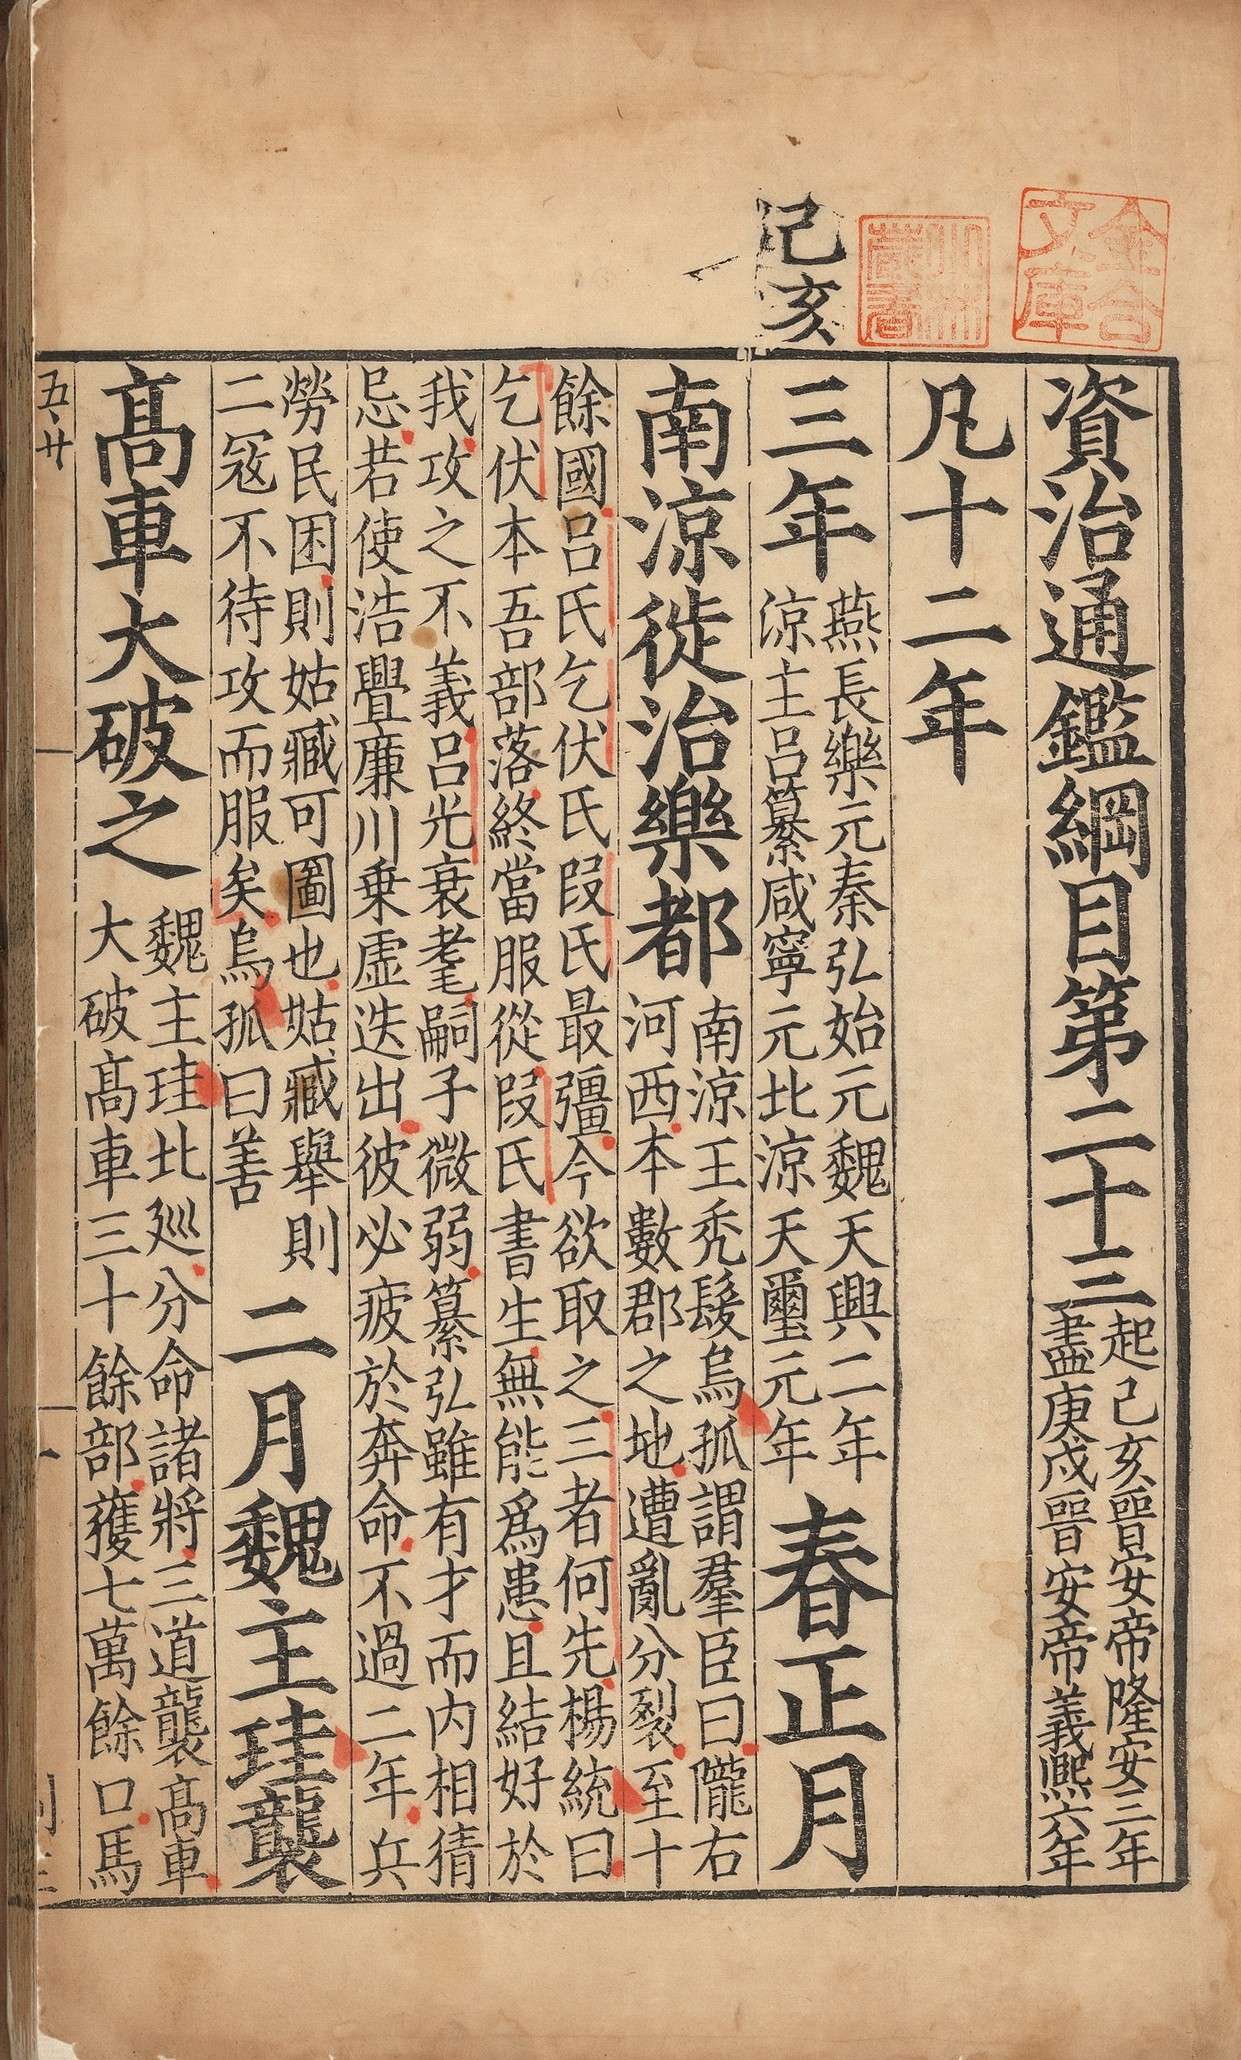 金合文庫
己亥
資治通鑑綱目第二十三
起己亥晉安帝隆安三年
盡庚戌晉安帝義熙六年
凡十二年
三年
燕長樂元秦弘始元魏天興二年
涼主呂纂咸寧元北涼天璽元年
春正月
南涼徙治樂都
南涼王禿髮烏孤謂羣臣曰隴右
河西本數郡之地遭亂分裂至十
餘國呂氏乞伏氏段氏最彊今欲取之三者何先楊統曰
乞伏本吾部落終當服從段氏書生無能爲患且結好於
我攻之不義呂光衰耄嗣子微弱纂弘雖有才而內相猜
忌若使浩亹廉川乗虛迭出彼必疲於奔命不過二年兵
勞民困則姑臧可圖也姑臧舉則
二寇不待攻而服矣烏孤曰善
二月魏主珪襲
高車大破之
魏主珪北廵分命諸將三道襲高車
大破高車三十餘部獲七萬餘口馬
五廿
一